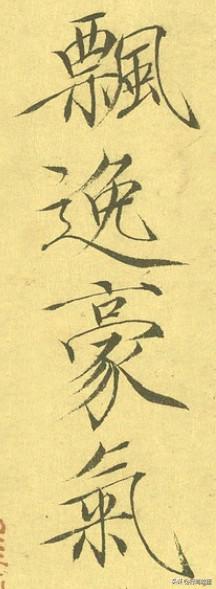 飄逸豪氣